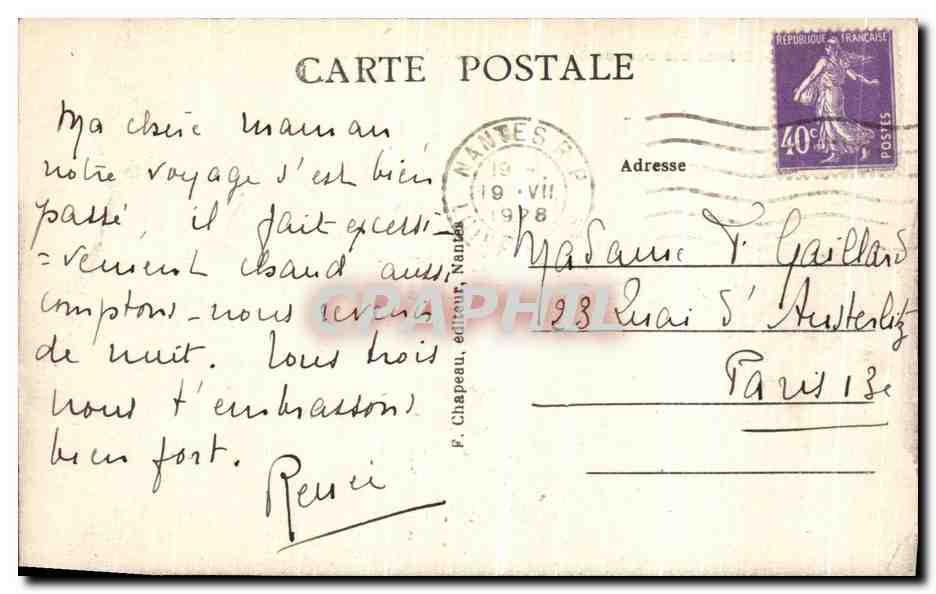 CARTE POSTALE
Ma chère maman
notre voyage s'est bien
passé, il fait excessi-
=vement chaud aussi
comptons-nous revenir
de nuit. Tous trois
nous t'embrassons
bien fort.
Renée
F. Chapeau, éditeur, Nantes
NANTES R.P.
19
19 · VII
1928
RÉPUBLIQUE FRANÇAISE
40c
POSTES
Adresse
Madame F. Gaillard
23 Quai d'Austerlitz
Paris 13e
CPAPHIL